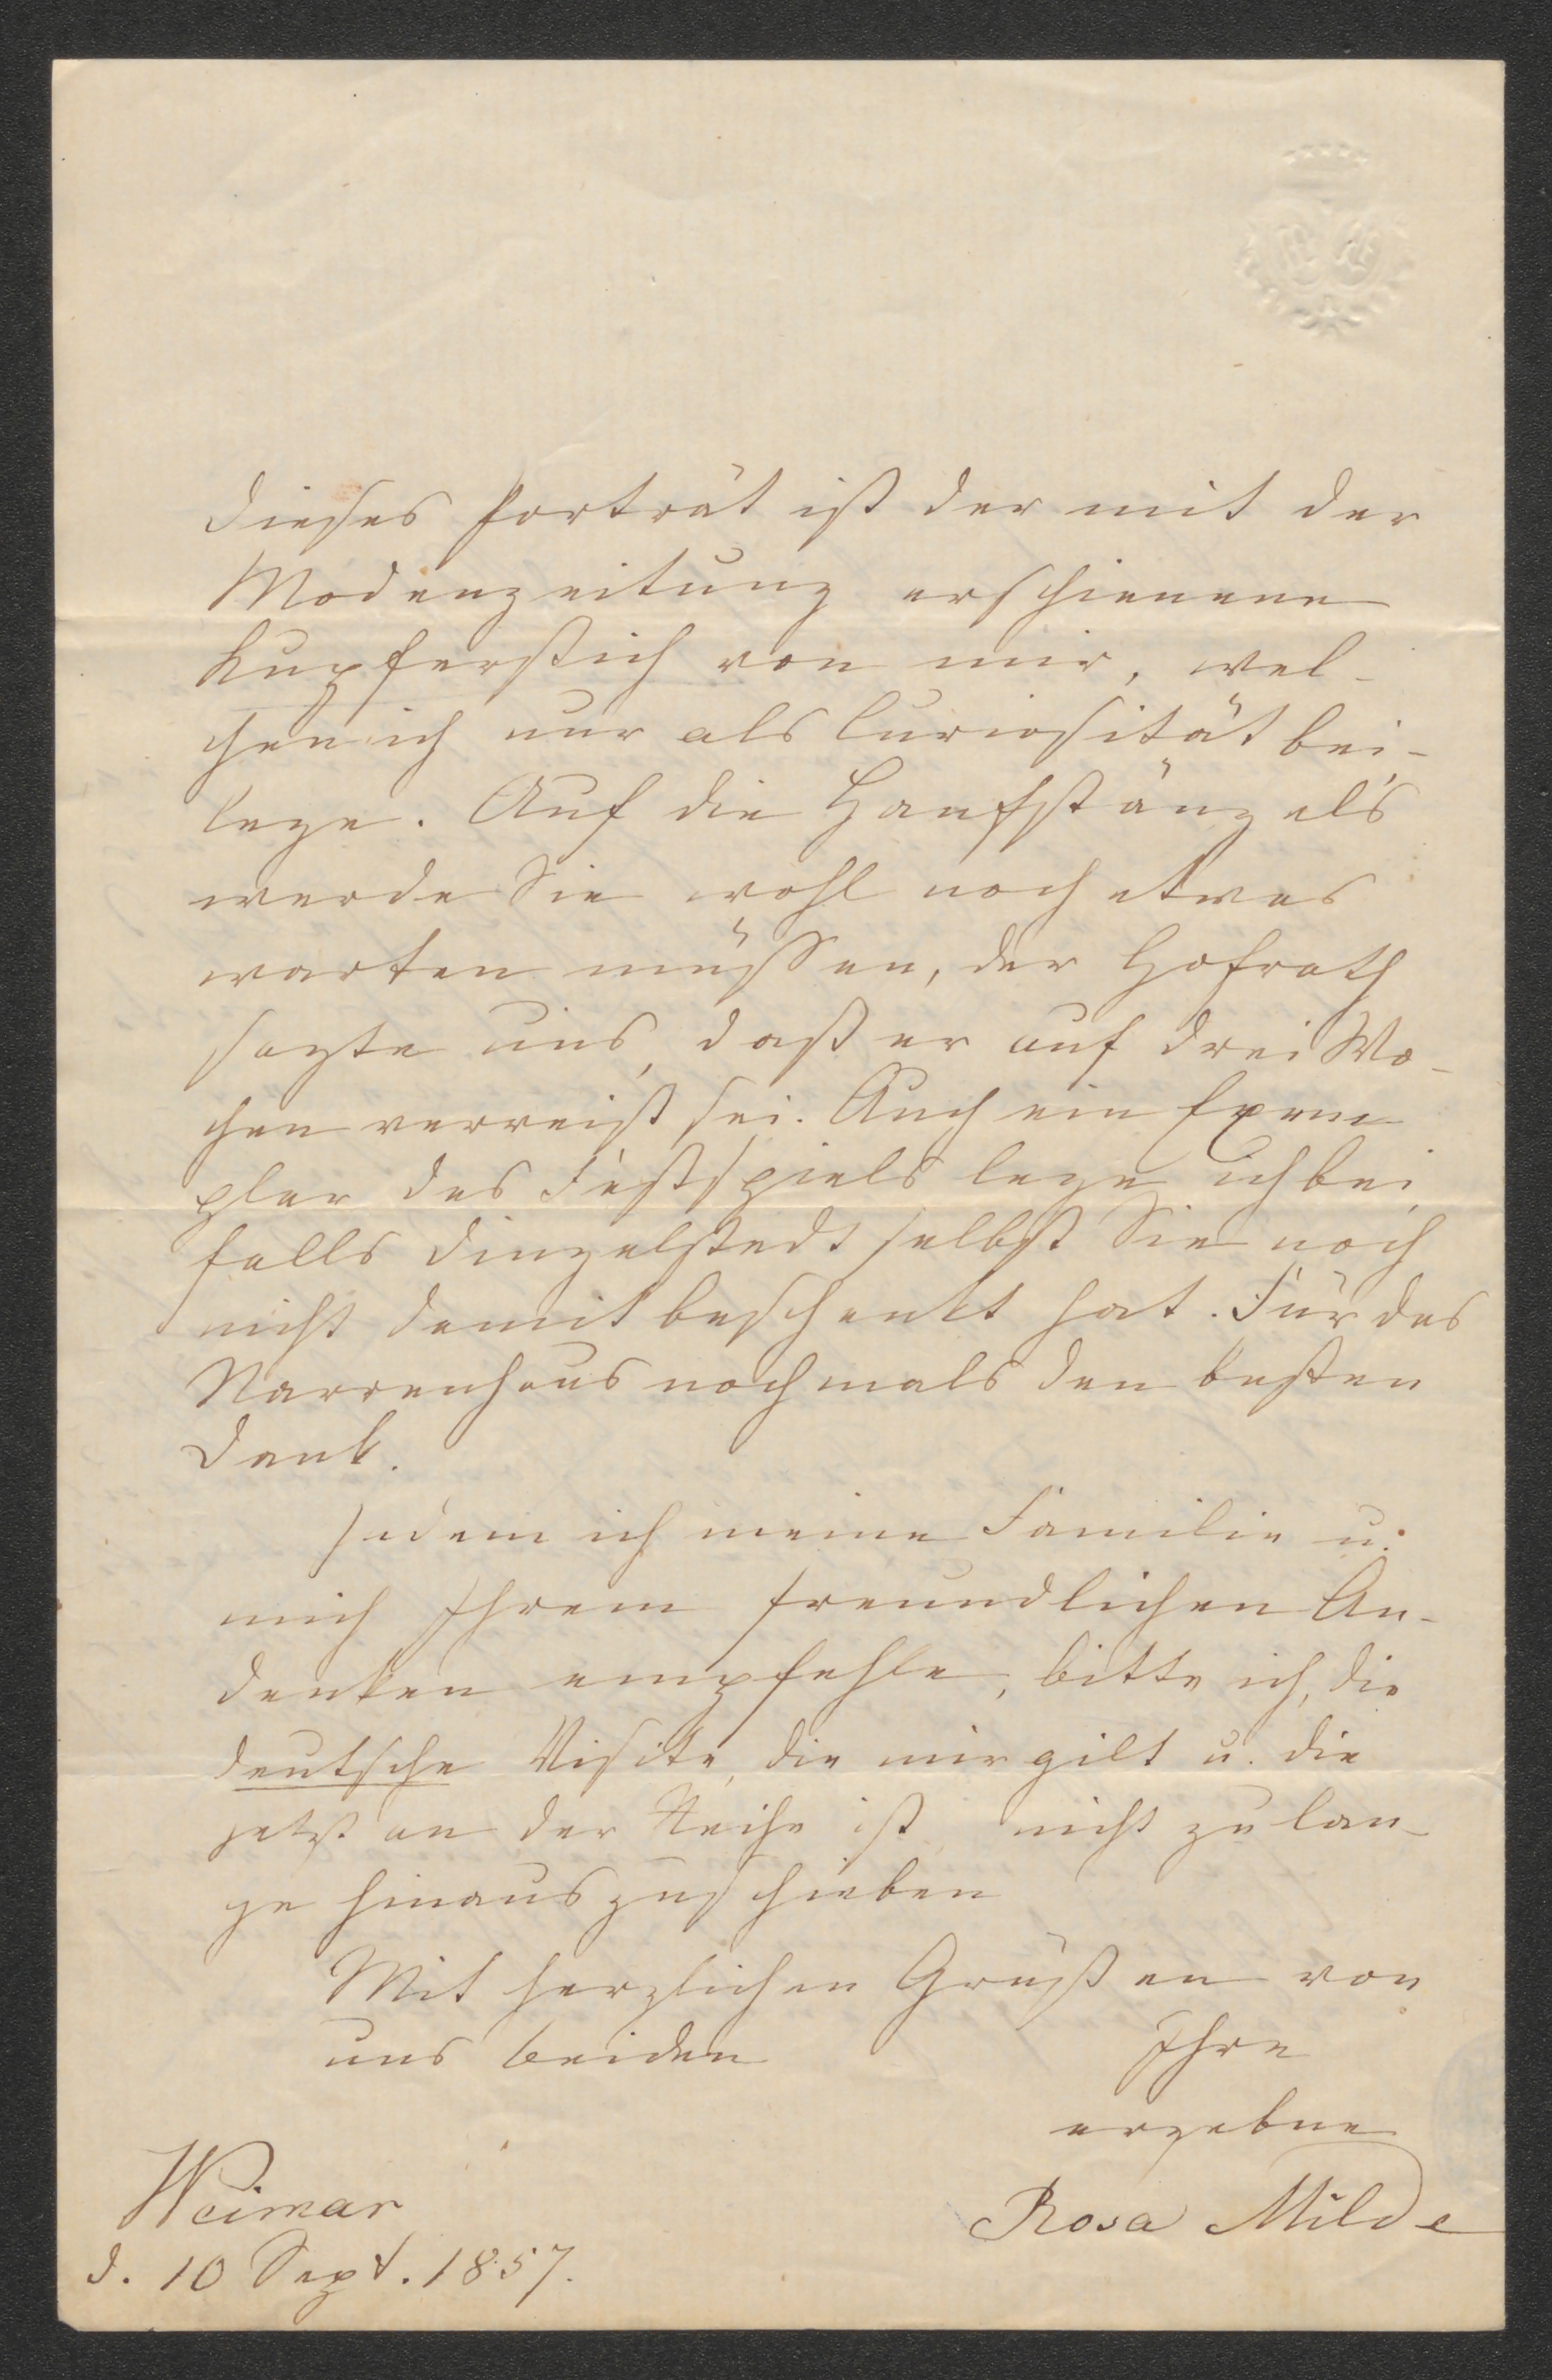 dieses Porträt ist der mit der
Modenzeitung erschienene
Kupferstich von mir, wel-
chen ich nur als Curiosität bei-
lege. Auf die Hanfstängels
werde Sie wohl noch etwas
warten müssen, der Hofrath
sagte uns, daß er auf drei Wo-
chen verreist sei. Auch ein Exem
plar des Festspiels lege ich bei
falls Dingelstedt selbst Sie noch
nicht damit beschenkt hat. Für das
Narrenhaus nochmals den besten
Dank.
Indem ich meine Familie u.
mich Ihrem freundlichen An-
denken empfehle, bitte ich, die
deutsche Visite, die mir gilt u. die
jetzt an der Reihe ist nicht zu lan-
ge hinauszuschieben
Mit herzlichen Grüßen von
uns beiden Ihre
ergebne
Rosa Milde
Weimar
d. 10 Sept. 1857.